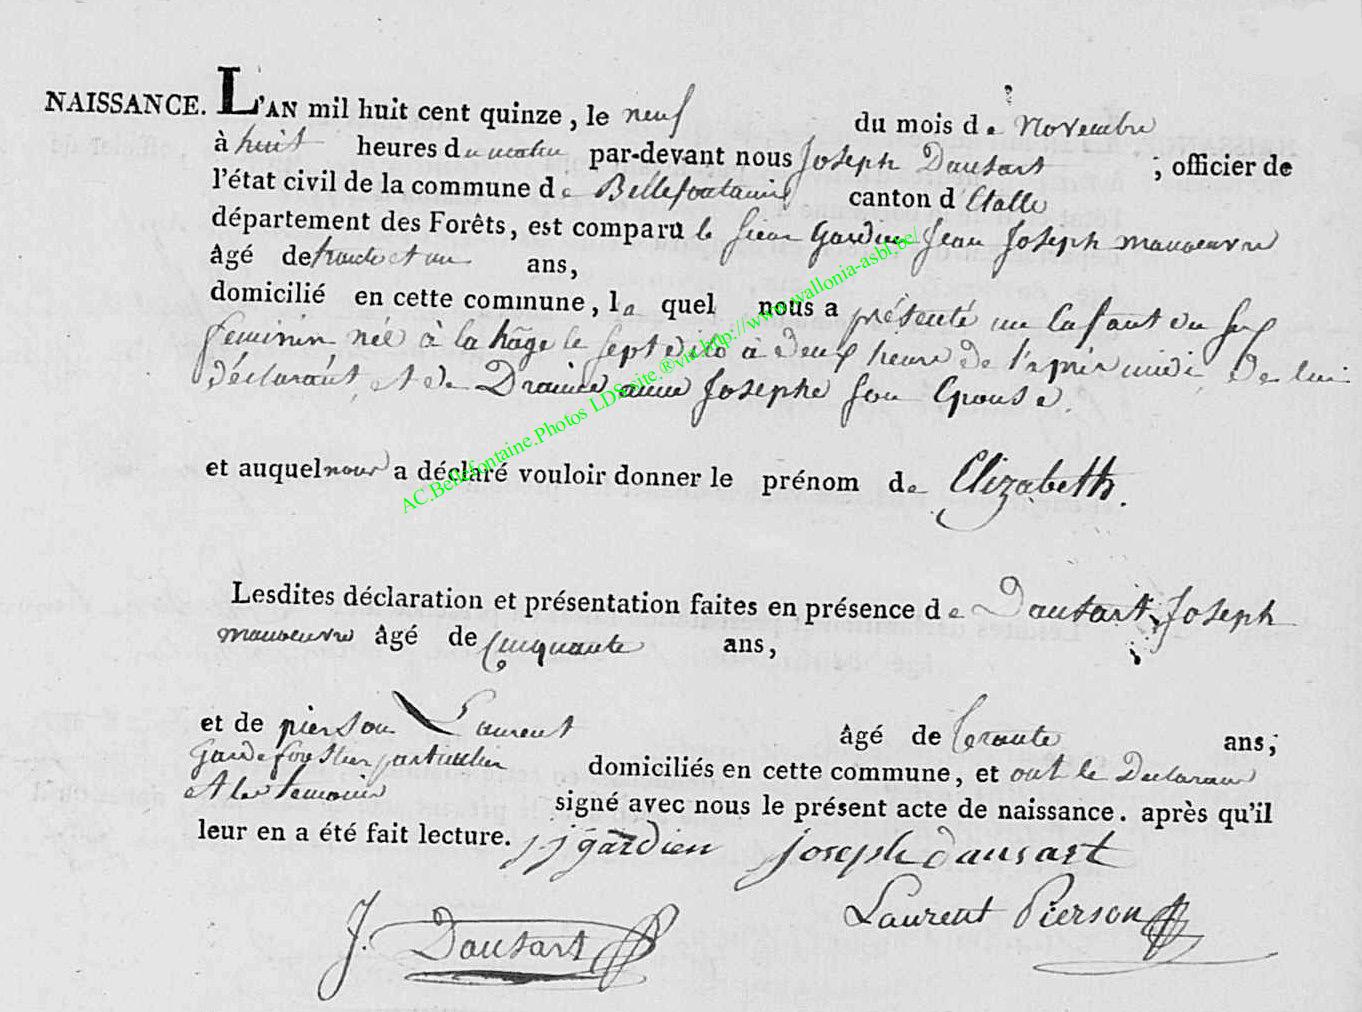 NAISSANCE. L'AN mil huit cent quinze, le neuf du mois de Novembre
à huit heures du matin par-devant nous Joseph Dausart ; officier de
l'état civil de la commune de Bellefontaine canton d'Etalle
département des Forêts, est comparu le sieur Gardien Jean Joseph manoeuvre
âgé de trente et un ans,
domicilié en cette commune, la quel nous a présenté un Enfant du sex
feminin née à la hâge le sept dito à deux heure de l'après midi de lui
déclarant, et de Draime anne Josephe son Epouse.
et auquel nous a déclaré vouloir donner le prénom de Elizabeth.
Lesdites déclaration et présentation faites en présence de Dausart Joseph
manoeuvre âgé de cinquante ans,
et de pierson Laurent âgé de trente ans;
Garde forestier particulier domiciliés en cette commune, et ont le Declarant
et les temoins signé avec nous le présent acte de naissance. après qu'il
leur en a été fait lecture. j j gardien joseph dausart
Laurent Pierson
J. Dausart
AC.Bellefontaine.Photos LDS site.® via http://www.wallonia-asbl.be/